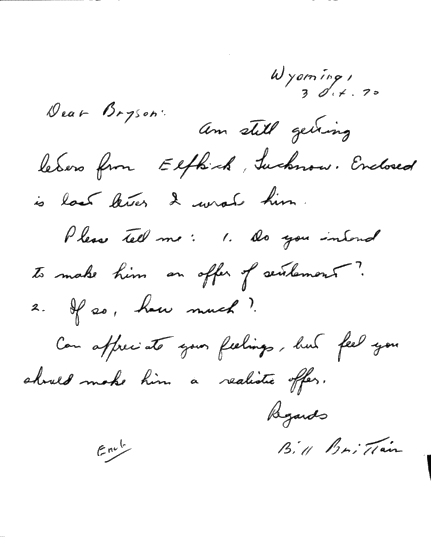 Wyoming,
3 Oct. 70
Dear Bryson:
Am still getting
letters from Elfkick, Lucknow. Enclosed
is last letter I wrote him.
Please tell me: 1. Do you intend
to make him an offer of settlement?
2. If so, how much?
Can appreciate your feelings, but feel you
should make him a realistic offer.
Regards
Bill Brittain
Encl.